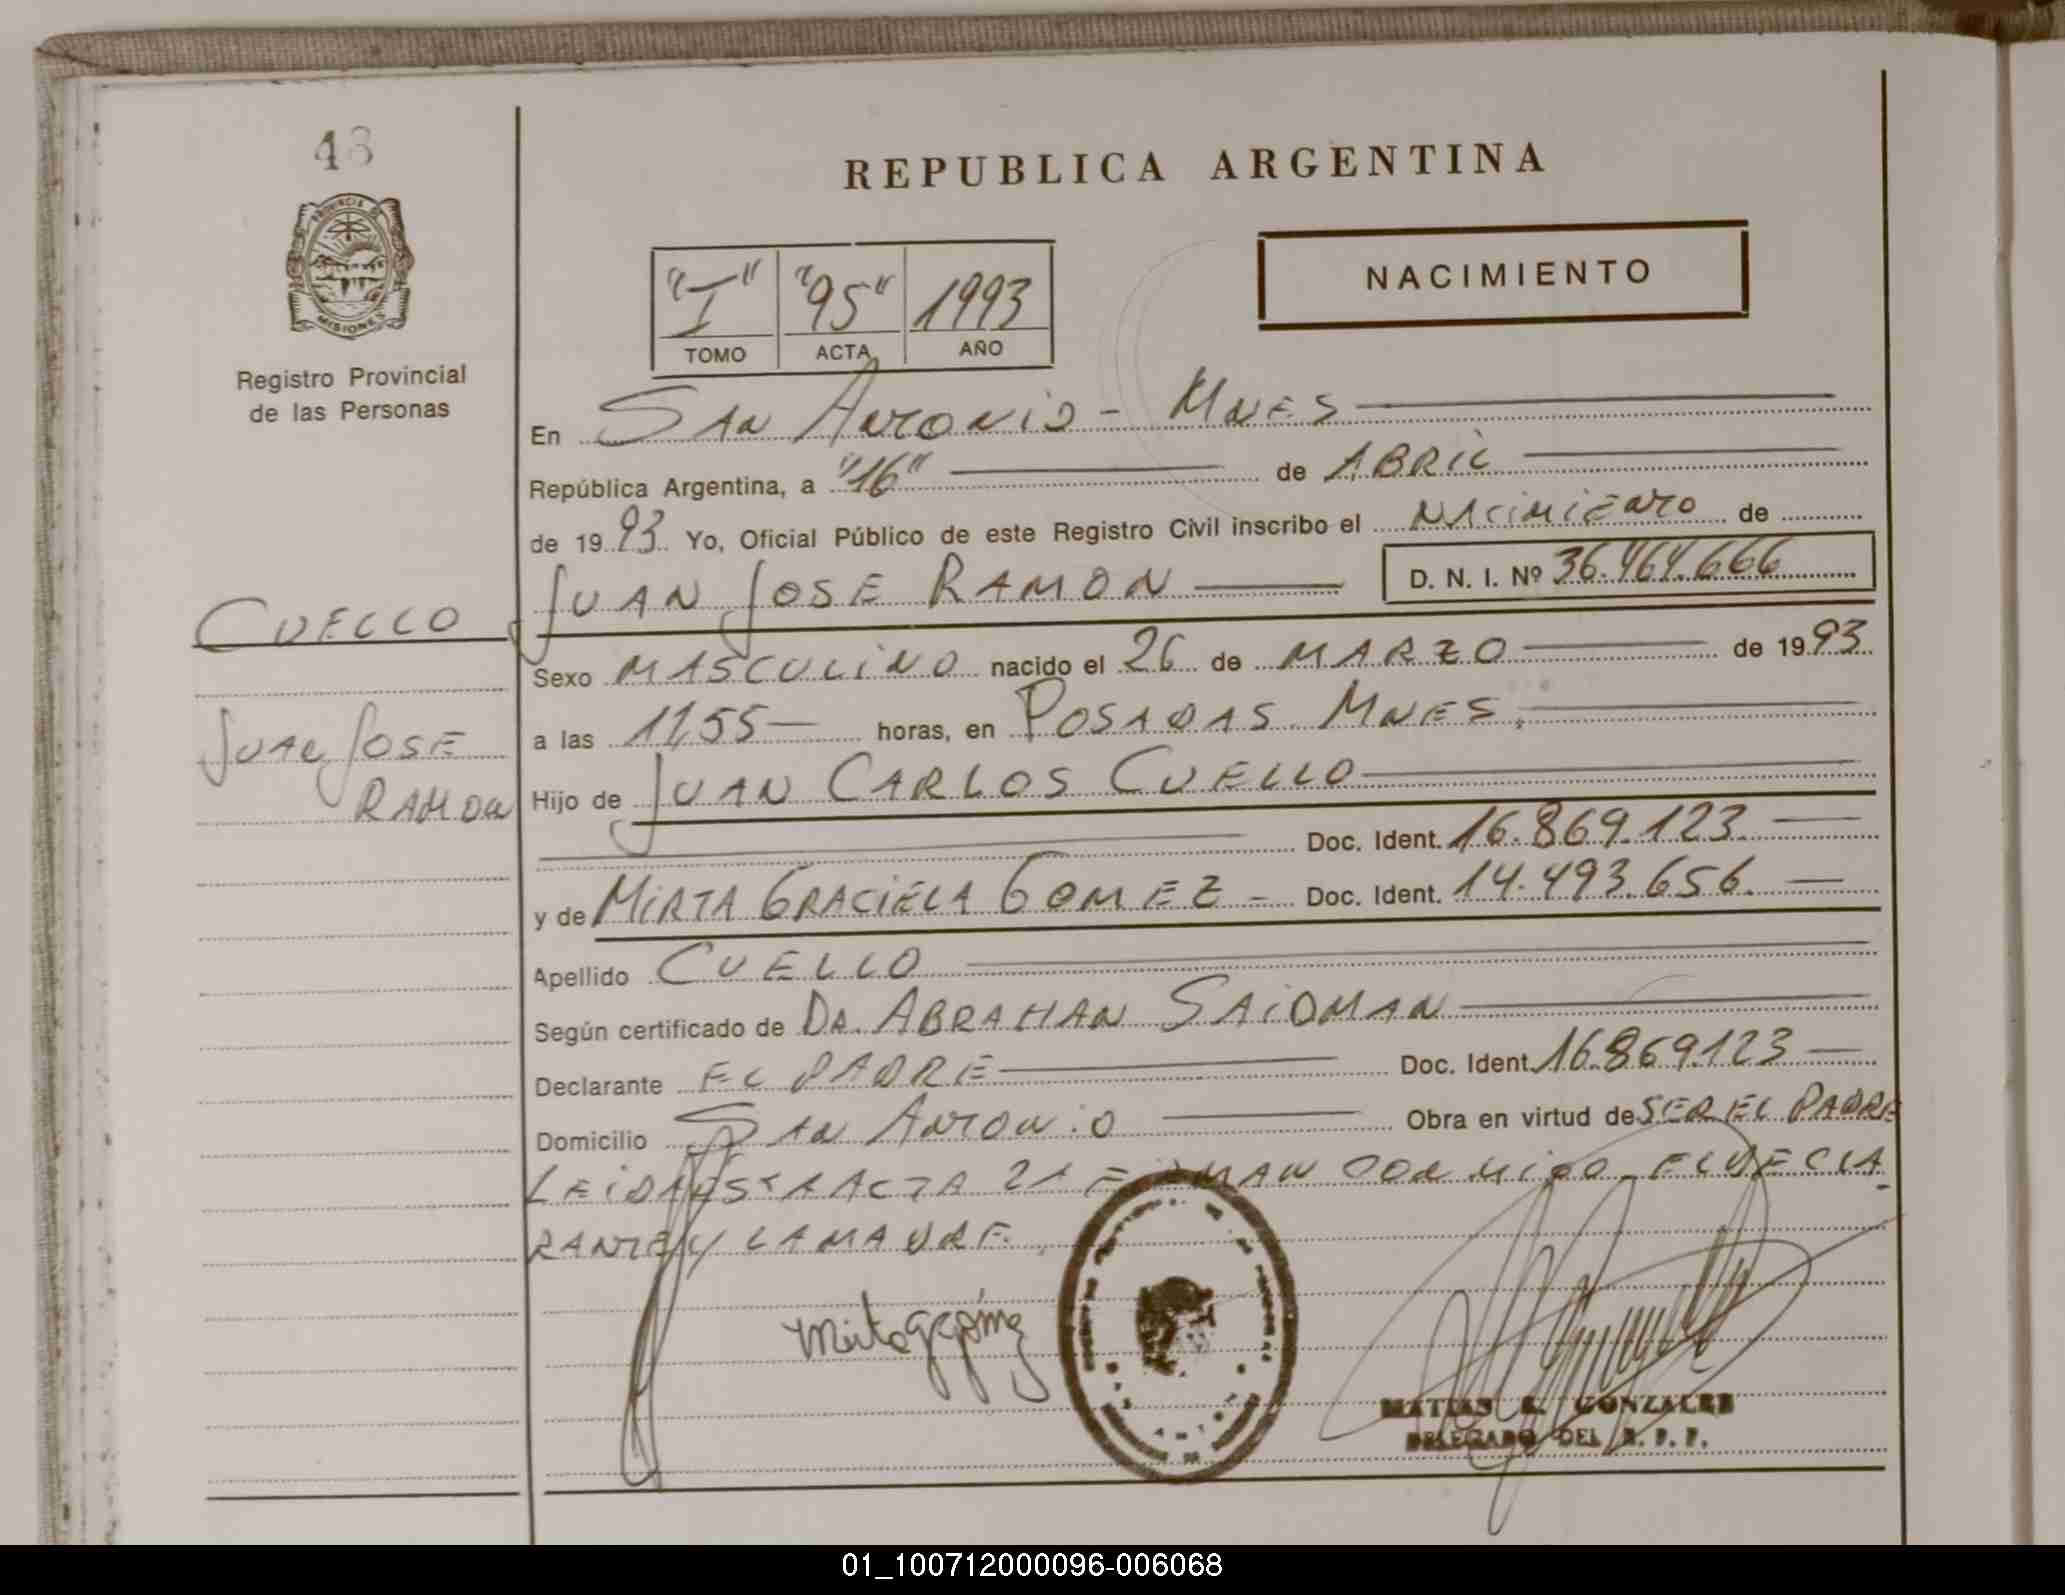 48
PROVINCIA DE
MISIONES
Registro Provincial
de las Personas
REPUBLICA ARGENTINA
NACIMIENTO
"I" "95" 1993
TOMO ACTA AÑO
En SAN ANTONIO - MNES
República Argentina, a "16" de ABRIL
de 1993 Yo, Oficial Público de este Registro Civil inscribo el NACIMIENTO de
JUAN JOSE RAMON D. N. I. Nº 36.464.666
CUELLO
JUAN JOSE
RAMON
Sexo MASCULINO nacido el 26 de MARZO de 1993
a las 11,55 horas, en POSADAS MNES.
Hijo de JUAN CARLOS CUELLO
Doc. Ident. 16.869.123
y de MIRTA GRACIELA GOMEZ - Doc. Ident. 14.493.656.
Apellido CUELLO
Según certificado de DR. ABRAHAN SAIDMAN
Declarante EL PADRE Doc. Ident. 16.869.123
Domicilio SAN ANTONIO Obra en virtud de SER EL PADRE
LEIDA ESTA ACTA LA FIRMAN CONMIGO EL DECLA
RANTE Y LA MADRE.
MATIAS R. GONZALEZ
DELEGADO DEL R. P. P.
01_100712000096-006068